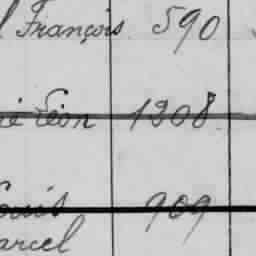 François 590
Léon 1308
Louis 909
arcel